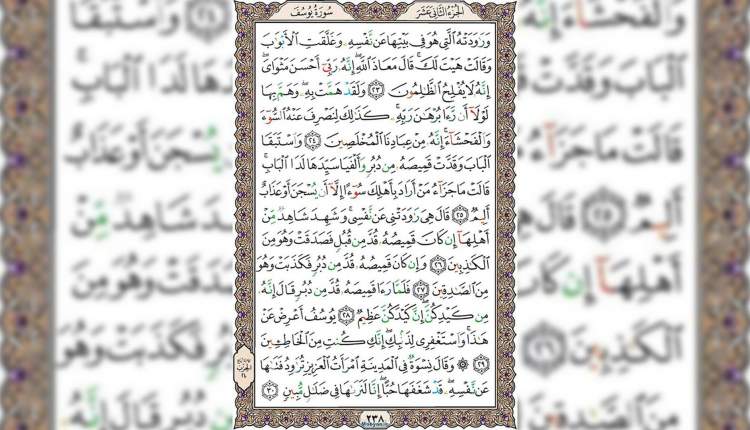 الجزء الثاني عشر
سورة يوسف
وَرَٰوَدَتْهُ الَّتِي هُوَ فِي بَيْتِهَا عَن نَّفْسِهِ وَغَلَّقَتِ الْأَبْوَابَ
وَقَالَتْ هَيْتَ لَكَ قَالَ مَعَاذَ اللَّهِ إِنَّهُ رَبِّي أَحْسَنَ مَثْوَايَ
إِنَّهُ لَا يُفْلِحُ الظَّالِمُونَ ٢٣ وَلَقَدْ هَمَّتْ بِهِ وَهَمَّ بِهَا
لَوْلَا أَن رَّءَا بُرْهَٰنَ رَبِّهِ كَذَٰلِكَ لِنَصْرِفَ عَنْهُ السُّوءَ
وَالْفَحْشَاءَ إِنَّهُ مِنْ عِبَادِنَا الْمُخْلَصِينَ ٢٤ وَاسْتَبَقَا
الْبَابَ وَقَدَّتْ قَمِيصَهُ مِن دُبُرٍ وَأَلْفَيَا سَيِّدَهَا لَدَا الْبَابِ
قَالَتْ مَا جَزَاءُ مَنْ أَرَادَ بِأَهْلِكَ سُوءًا إِلَّا أَن يُسْجَنَ أَوْ عَذَابٌ
أَلِيمٌ ٢٥ قَالَ هِيَ رَٰوَدَتْنِي عَن نَّفْسِي وَشَهِدَ شَاهِدٌ مِّنْ
أَهْلِهَا إِن كَانَ قَمِيصُهُ قُدَّ مِن قُبُلٍ فَصَدَقَتْ وَهُوَ مِنَ
الْكَٰذِبِينَ ٢٦ وَإِن كَانَ قَمِيصُهُ قُدَّ مِن دُبُرٍ فَكَذَبَتْ وَهُوَ
مِنَ الصَّٰدِقِينَ ٢٧ فَلَمَّا رَءَا قَمِيصَهُ قُدَّ مِن دُبُرٍ قَالَ إِنَّهُ
مِن كَيْدِكُنَّ إِنَّ كَيْدَكُنَّ عَظِيمٌ ٢٨ يُوسُفُ أَعْرِضْ عَنْ
هَٰذَا وَاسْتَغْفِرِي لِذَنبِكِ إِنَّكِ كُنتِ مِنَ الْخَاطِئِينَ
٢٩ وَقَالَ نِسْوَةٌ فِي الْمَدِينَةِ امْرَأَتُ الْعَزِيزِ تُرَٰوِدُ فَتَىٰهَا
عَن نَّفْسِهِ قَدْ شَغَفَهَا حُبًّا إِنَّا لَنَرَىٰهَا فِي ضَلَٰلٍ مُّبِينٍ ٣٠
٢٣٨